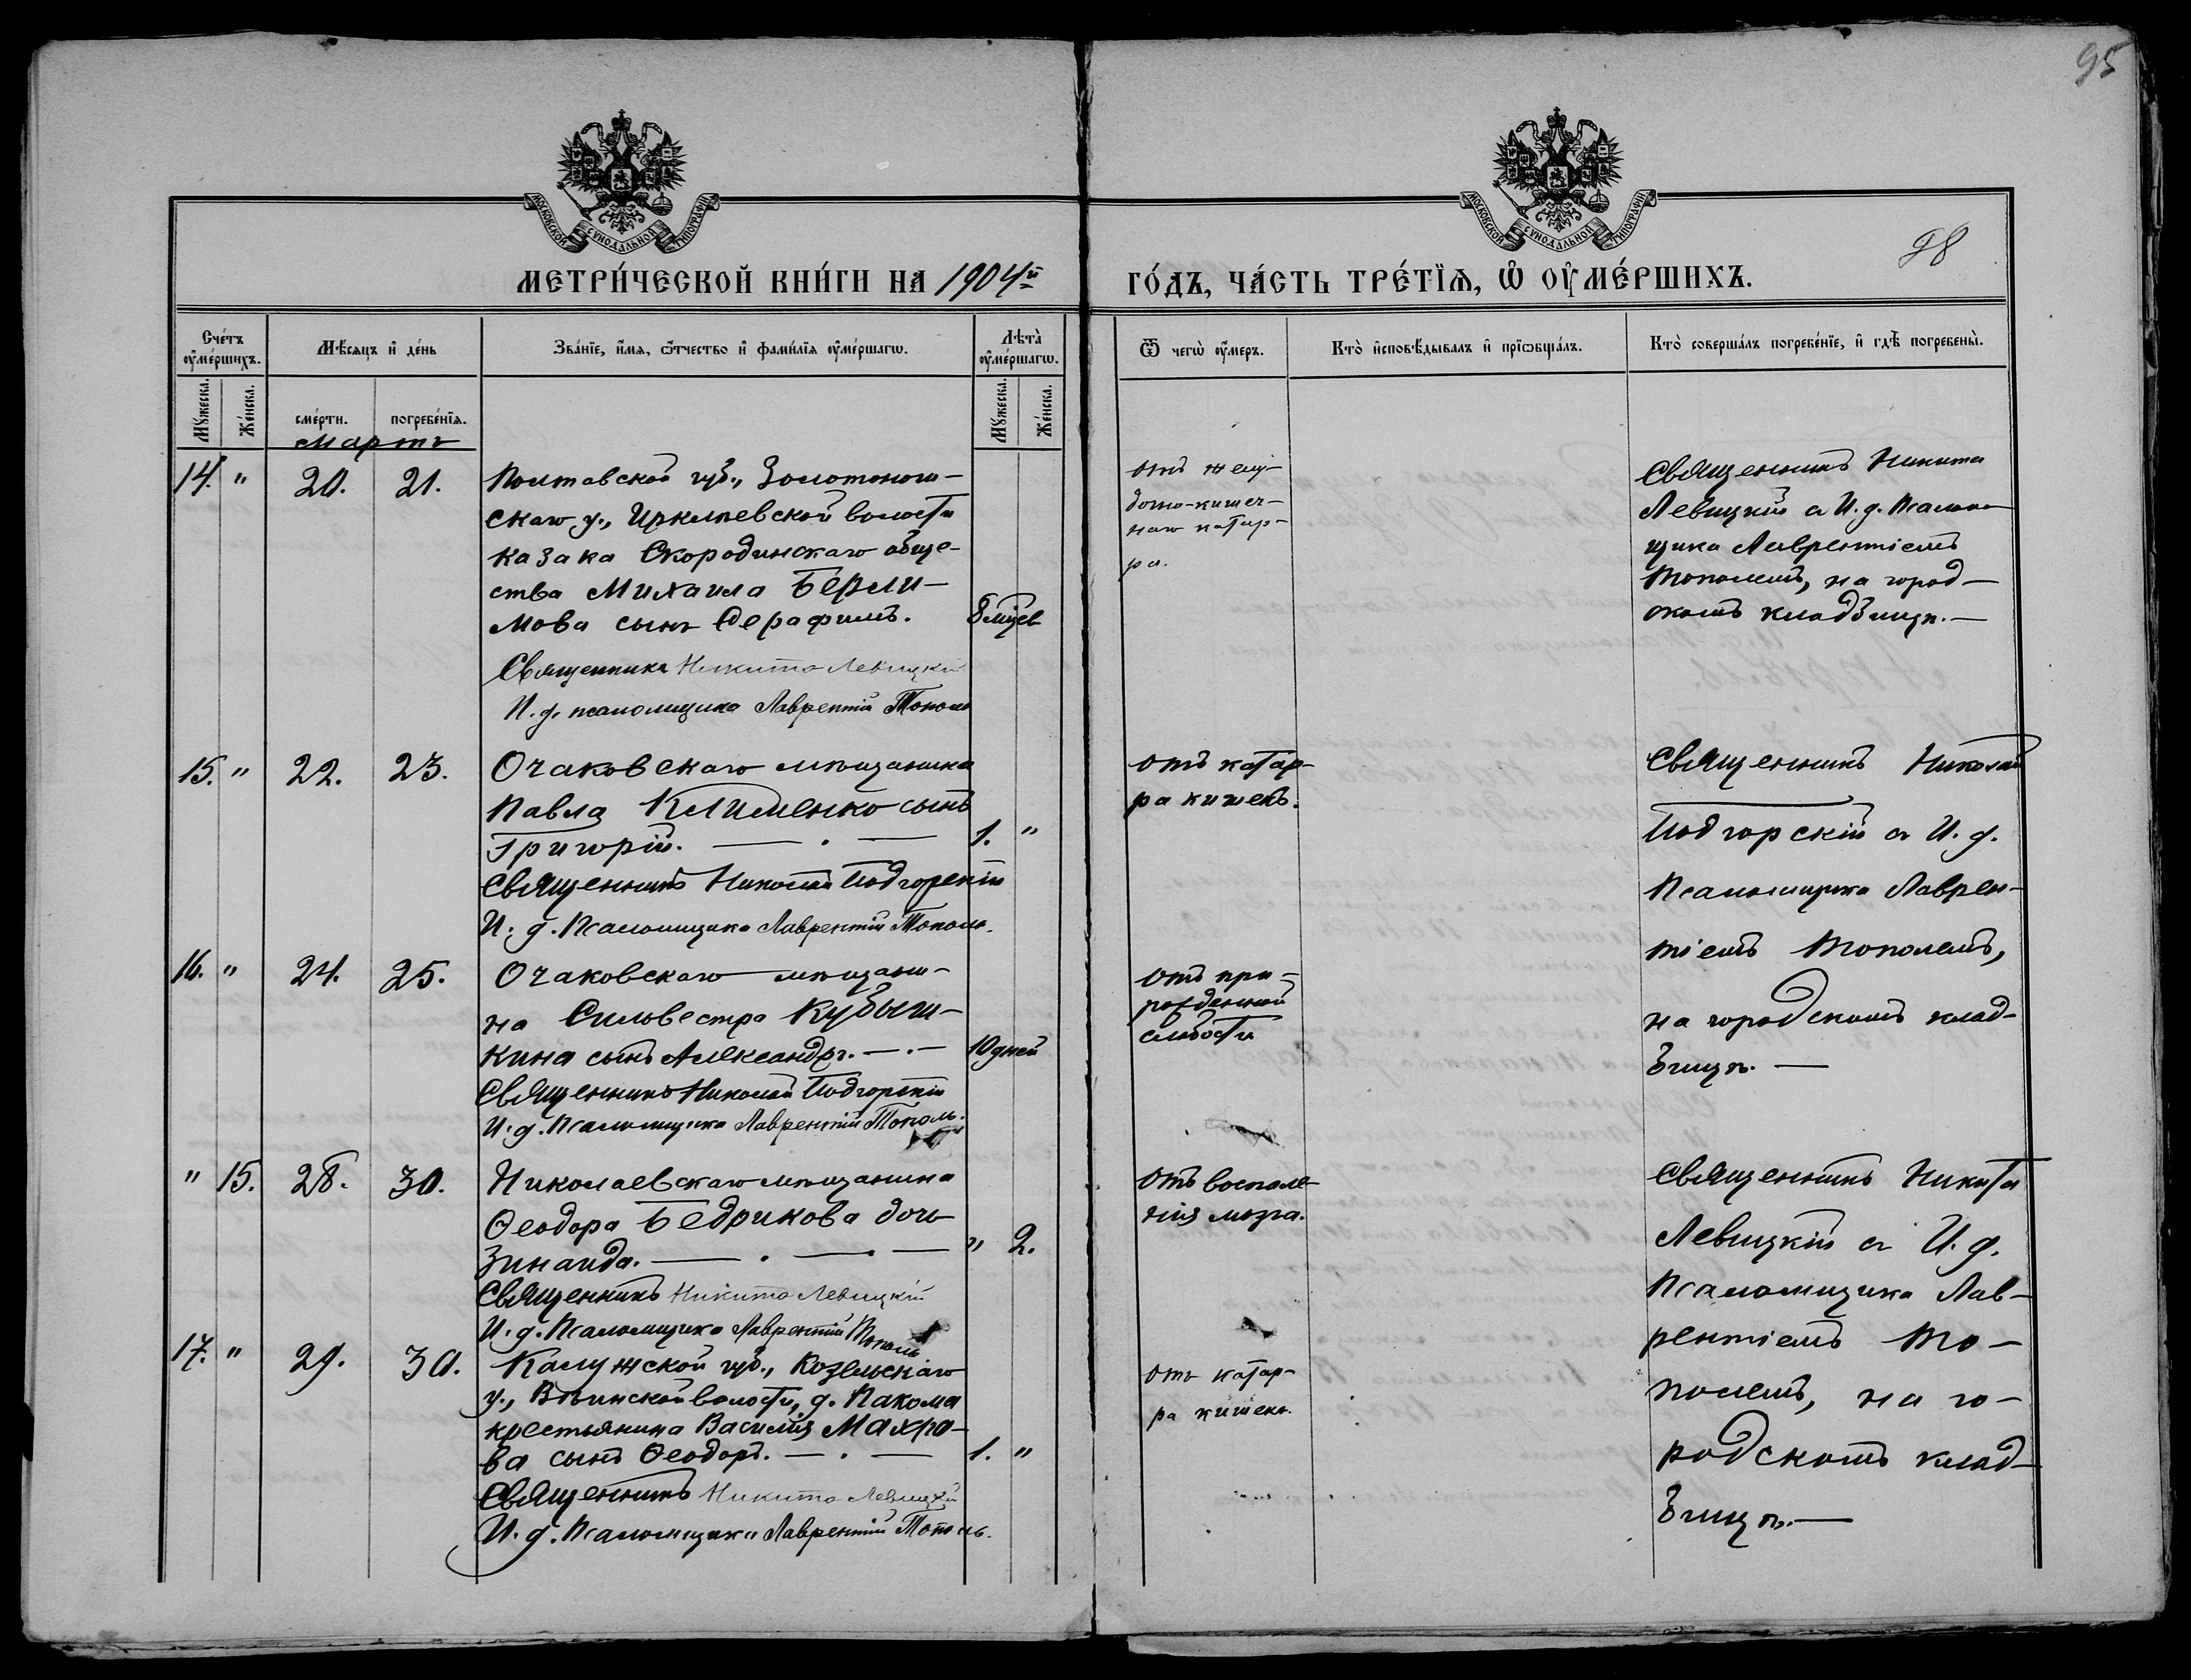 95
98
МОСКОВСКОЙ СѴНОДАЛЬНОЙ ТИПОГРАФІИ
МОСКОВСКОЙ СѴНОДАЛЬНОЙ ТИПОГРАФІИ
МЕТРИ́ЧЕСКОЙ КНИ́ГИ НА 1904й
ГО́ДЪ, ЧА́СТЬ ТРЕ́ТЇѦ, Ѽ ОУ҆МЕ́РШИХЪ.
Сче́тъ оу҆ме́ршихъ.
Мѣ́сяцъ и҆ де́нь
Зва́нїе, и҆́мя, ѻ҆́тчество и҆ фами́лїя оу҆ме́ршагѡ.
Лѣта̀ оу҆ме́ршагѡ.
Ѿ чегѡ̀ оу҆́меръ.
Кто̀ и҆сповѣ́дывалъ и҆ прїѡбща́лъ.
Кто̀ соверша́лъ погребе́нїе, и҆ гдѣ̀ погребены̀.
Мꙋ́жеска.
Же́нска.
сме́рти.
погребе́нїя.
Мꙋ́жеска.
Же́нска.
Мартъ
14. " 20. 21.
Полтавской губ., Золотонош-
скаго у., Ирклѣевской волости
казака Скородинскаго обще-
ства Михаила Берли-
мова сынъ Серафимъ.
8 мѣсев
Священника Никита Левицкій
И. д. псаломщика Лаврентій Тополь
отъ желу-
дочно-кишеч-
наго катар-
ра.
Священникъ Никита
Левицкій съ И. д. Псалом-
щика Лаврентіемъ
Тополемъ, на город-
скомъ кладбищѣ.—
15. " 22. 23.
Очаковскаго мѣщанина
Павла Клименко сынъ
Григорій. — . —
1. "
Священникъ Николай Подгорскій
И. д. Псаломщика Лаврентій Тополь.
отъ катар-
ра кишекъ.
Священникъ Николай
Подгорскій съ И. д.
Псаломщика Лаврен-
тіемъ Тополемъ,
на городскомъ клад-
бищѣ. —
16. " 24. 25.
Очаковскаго мѣщани-
на Сильвестра Кубыш-
кина сынъ Александръ. — . —
10 дней
Священникъ Николай Подгорскій
И. д. Псаломщика Лаврентій Тополь.
отъ при-
рожденной
слабости
" 15. 28. 30.
Николаевскаго мѣщанина
Ѳеодора Бедрикова дочь
Зинаида. — . — . —
" 2.
Священникъ Никита Левицкій
И. д. Псаломщика Лаврентій Тополь
Отъ воспале-
нія мозга.
Священникъ Никита
Левицкій съ И. д.
Псаломщика Лав-
рентіемъ То-
полемъ, на го-
родскомъ клад-
бищѣ.—
17. " 29. 30.
Калужской губ., Козельскаго
у., волости, д. Пакома
крестьянина Василія Махро-
ва сынъ Ѳеодоръ. — . —
1. "
Священникъ Никита Левицкій
И. д. Псаломщика Лаврентій Тополь.
отъ катар-
ра кишекъ.